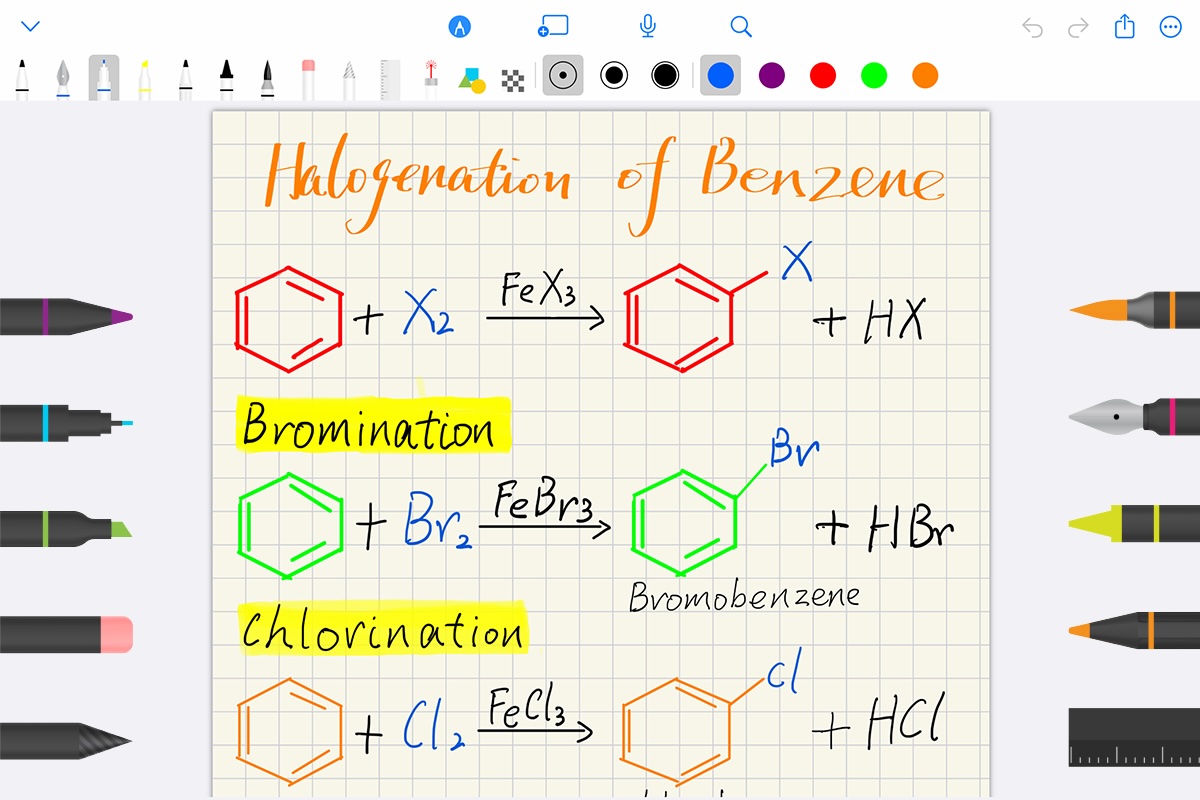 Halogenation of Benzene
+ X₂ FeX₃ → X + HX
Bromination
+ Br₂ FeBr₃ → Br + HBr
Bromobenzene
Chlorination
+ Cl₂ FeCl₃ → Cl + HCl